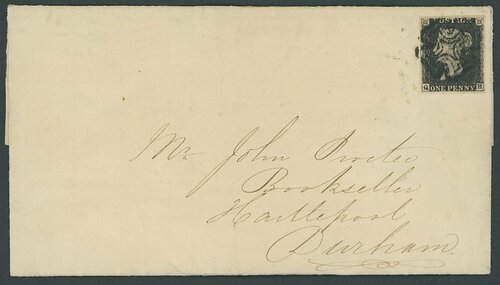 POSTAGE
ONE PENNY
Mr. John Procter
Bookseller
Hartlepool
Durham.